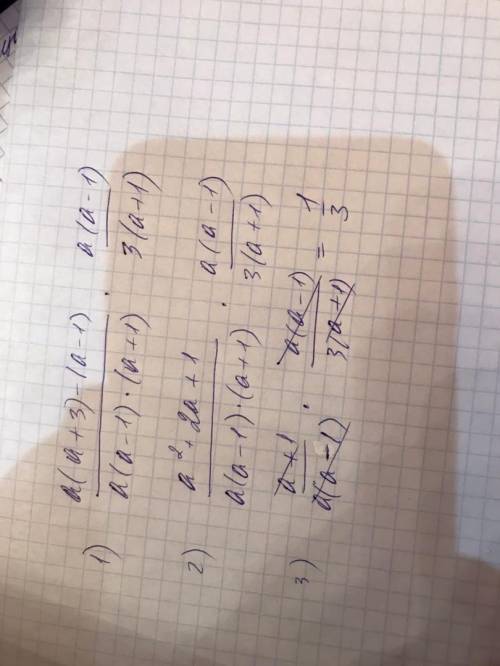 1) a(a+3)-(a-1) / a(a-1)·(a+1) · a(a-1) / 3(a+1)
2) a²+2a+1 / a(a-1)·(a+1) · a(a-1) / 3(a+1)
3) a+1 / a(a-1) · a(a-1) / 3(a+1) = 1 / 3